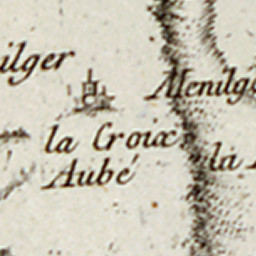 ilger
Menilg
la Croix
Aubé
la